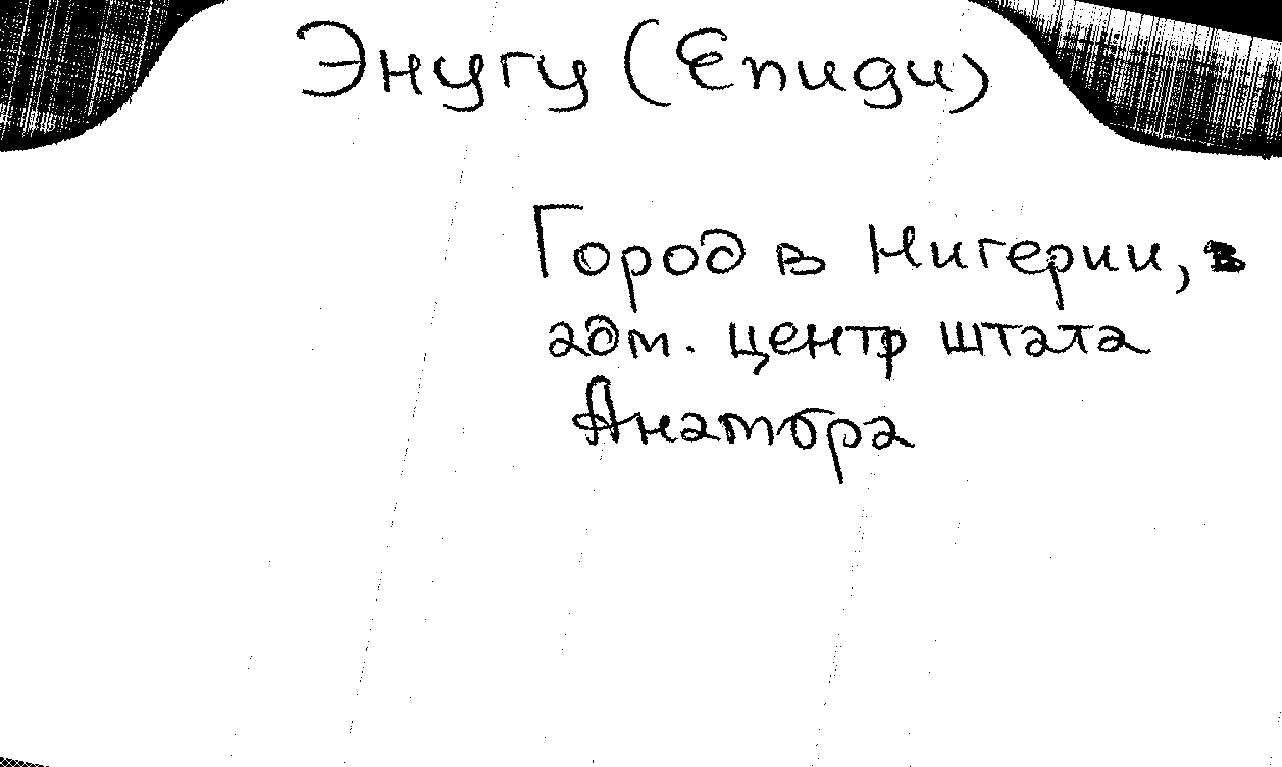 Энугу (Enugu)
Город в Нигерии,
адм. центр штата
Анамбра